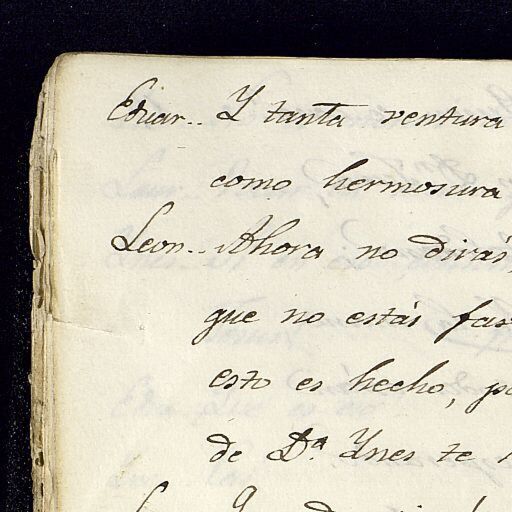 Eduar.. Y tanta ventura
como hermosura
Leon.. Ahora no dirás,
que no estás
esto es hecho,
de D.ª Ynes te